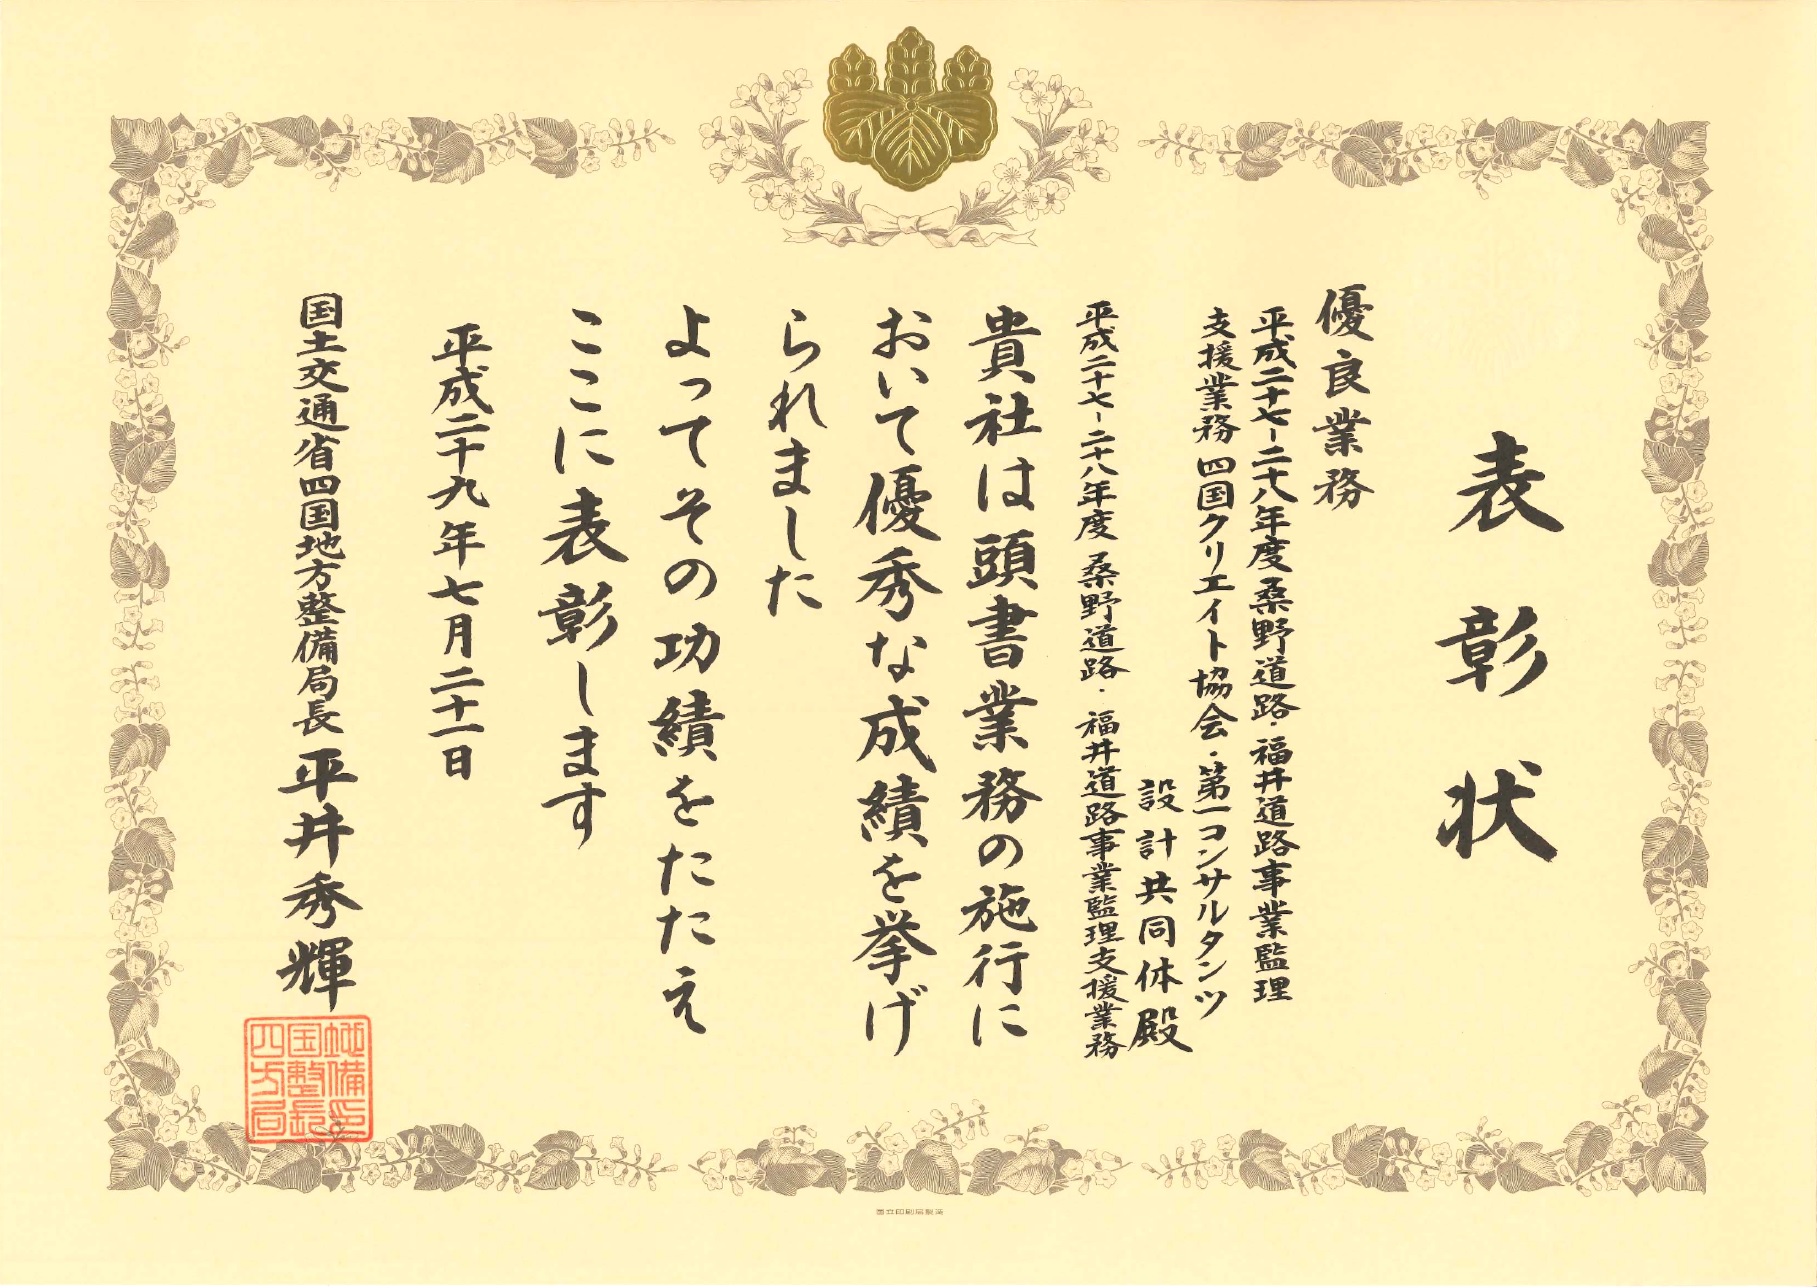 表彰状
優良業務
平成二十七-二十八年度桑野道路・福井道路事業監理
支援業務 四国クリエイト協会・第一コンサルタンツ
設計共同体殿
平成二十七-二十八年度 桑野道路・福井道路事業監理支援業務
貴社は頭書業務の施行に
おいて優秀な成績を挙げ
られました
よってその功績をたたえ
ここに表彰します
平成二十九年七月二十一日
国土交通省四国地方整備局長 平井秀輝
四国地方整備局長印
国立印刷局製造